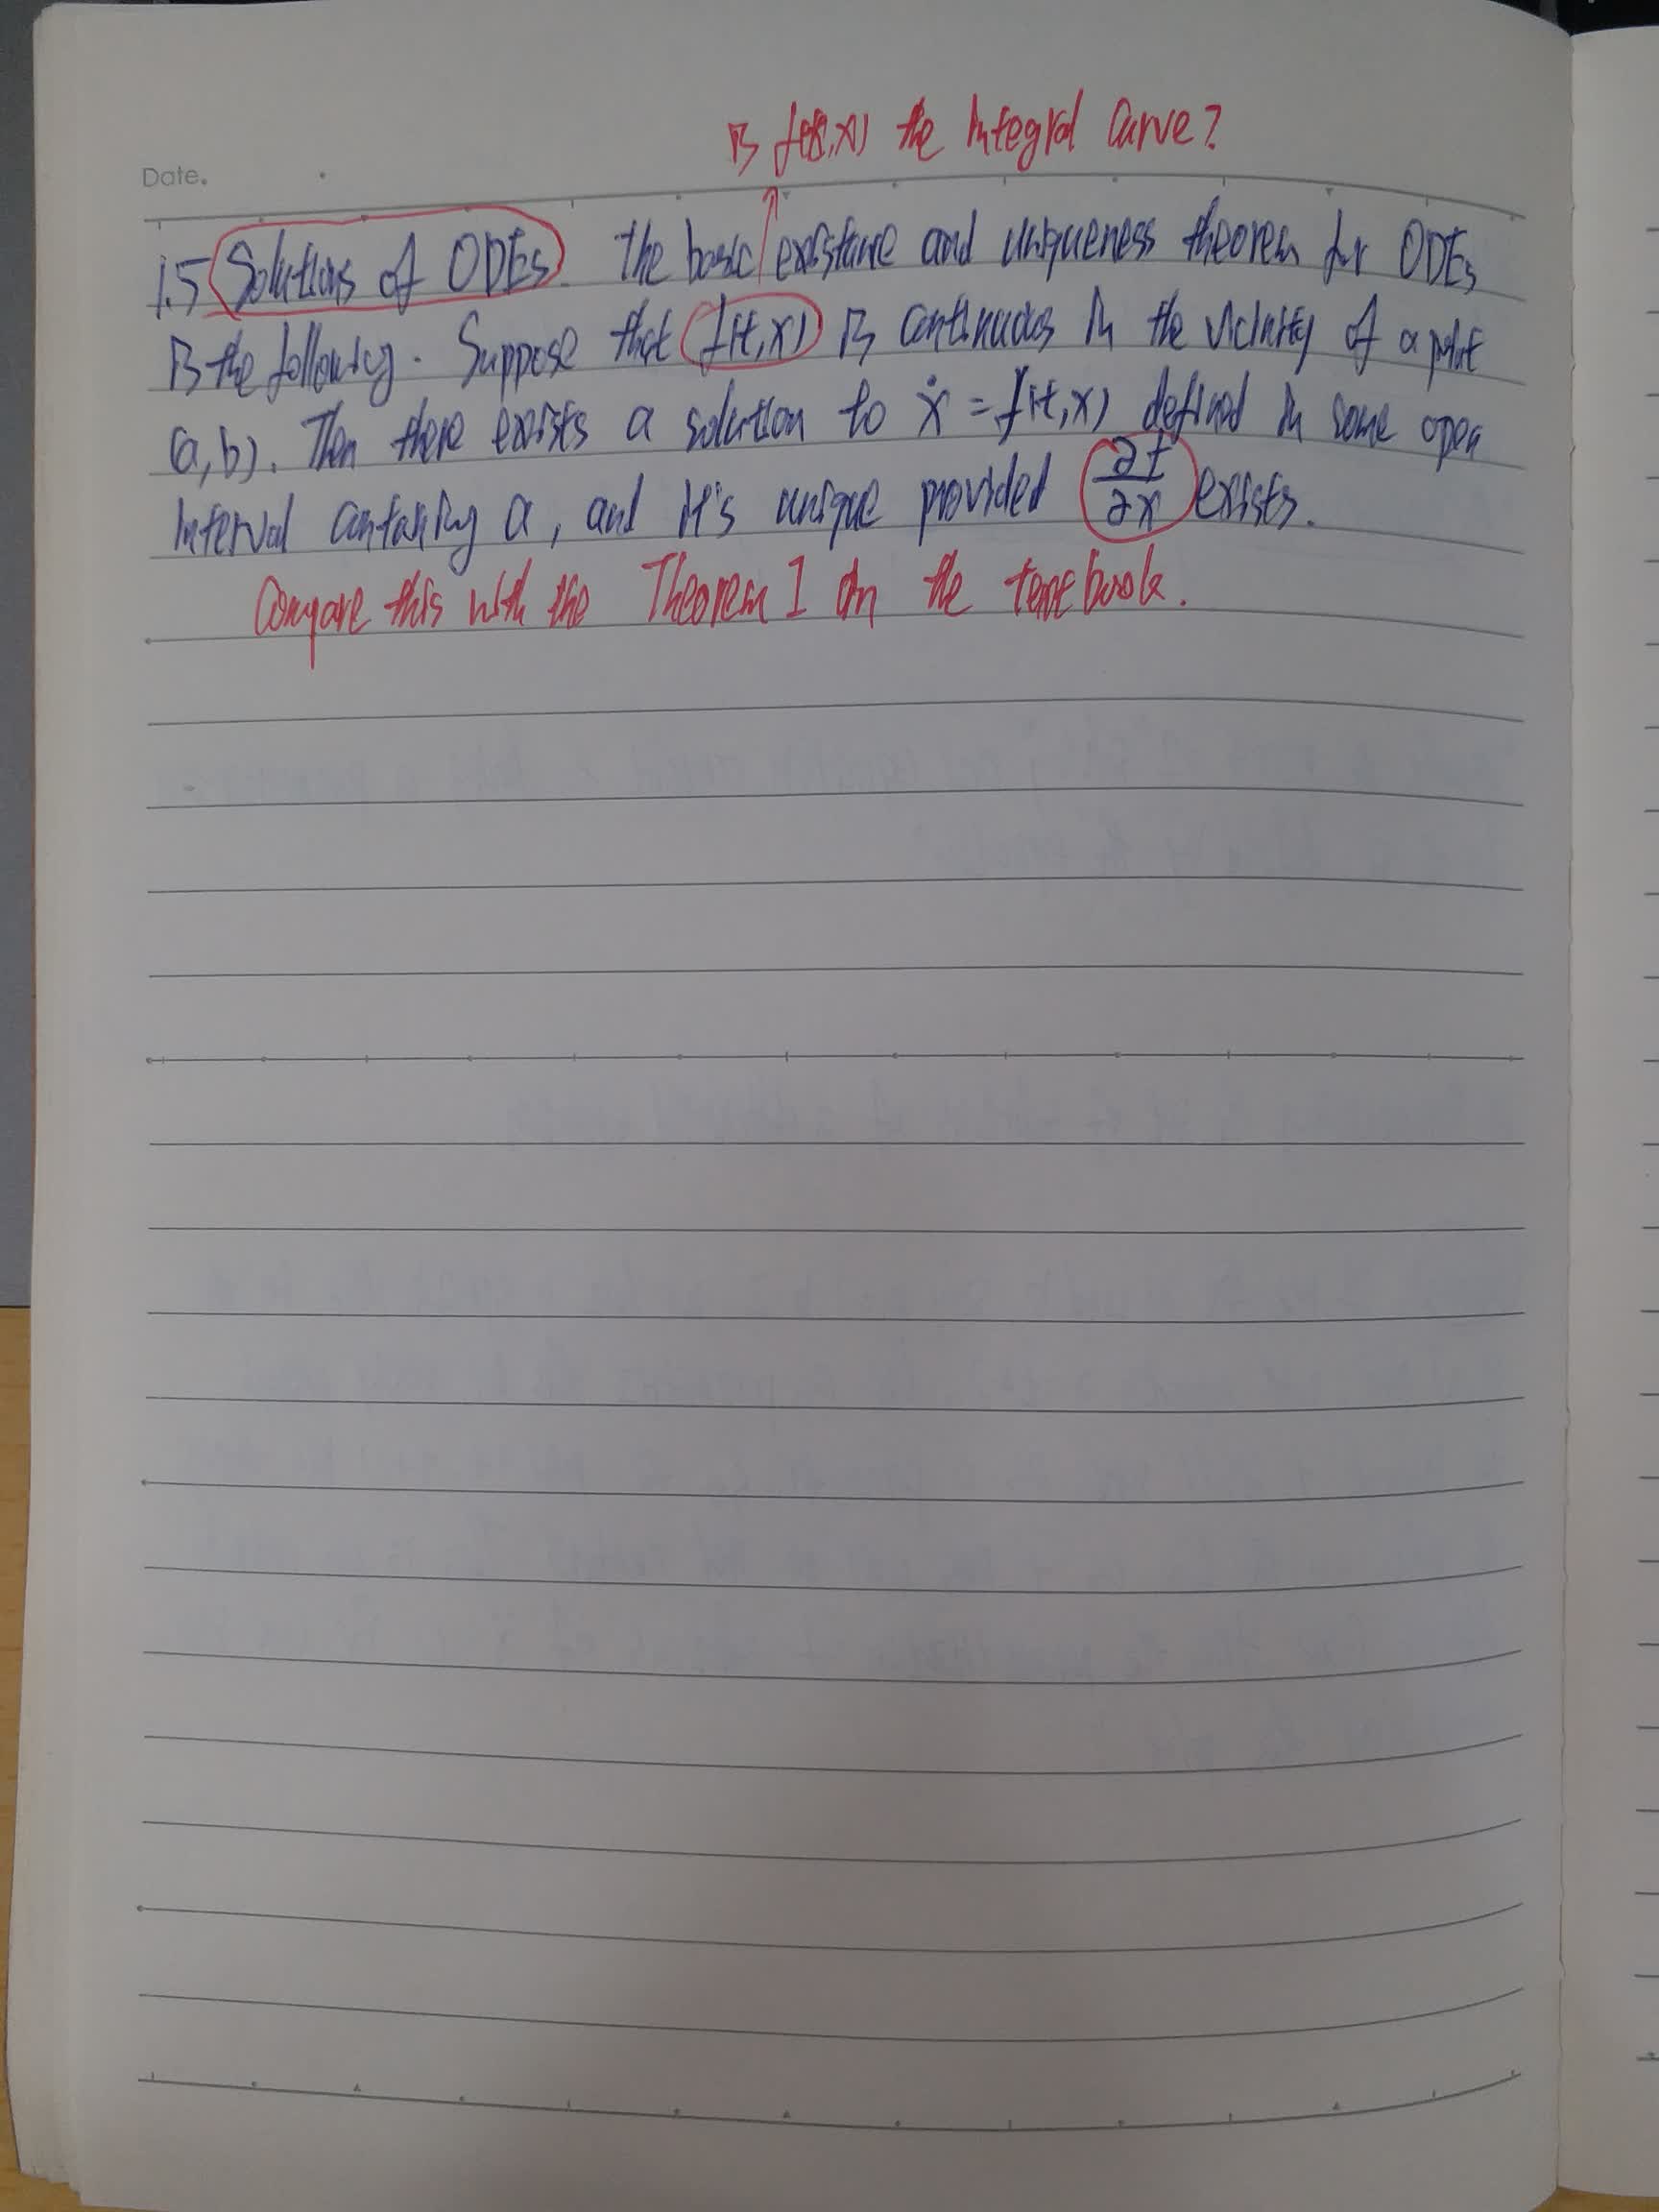 Is f(t,x) the integral curve?
Date.
1.5 Solutions of ODEs. The basic existence and uniqueness theorem for ODEs
is the following. Suppose that f(t,x) is continuous in the vicinity of a point
(a,b). Then there exists a solution to ẋ = f(t,x) defined in some open
interval containing a, and it's unique provided ∂f/∂x exists.
Compare this with the Theorem 1 on the textbook.